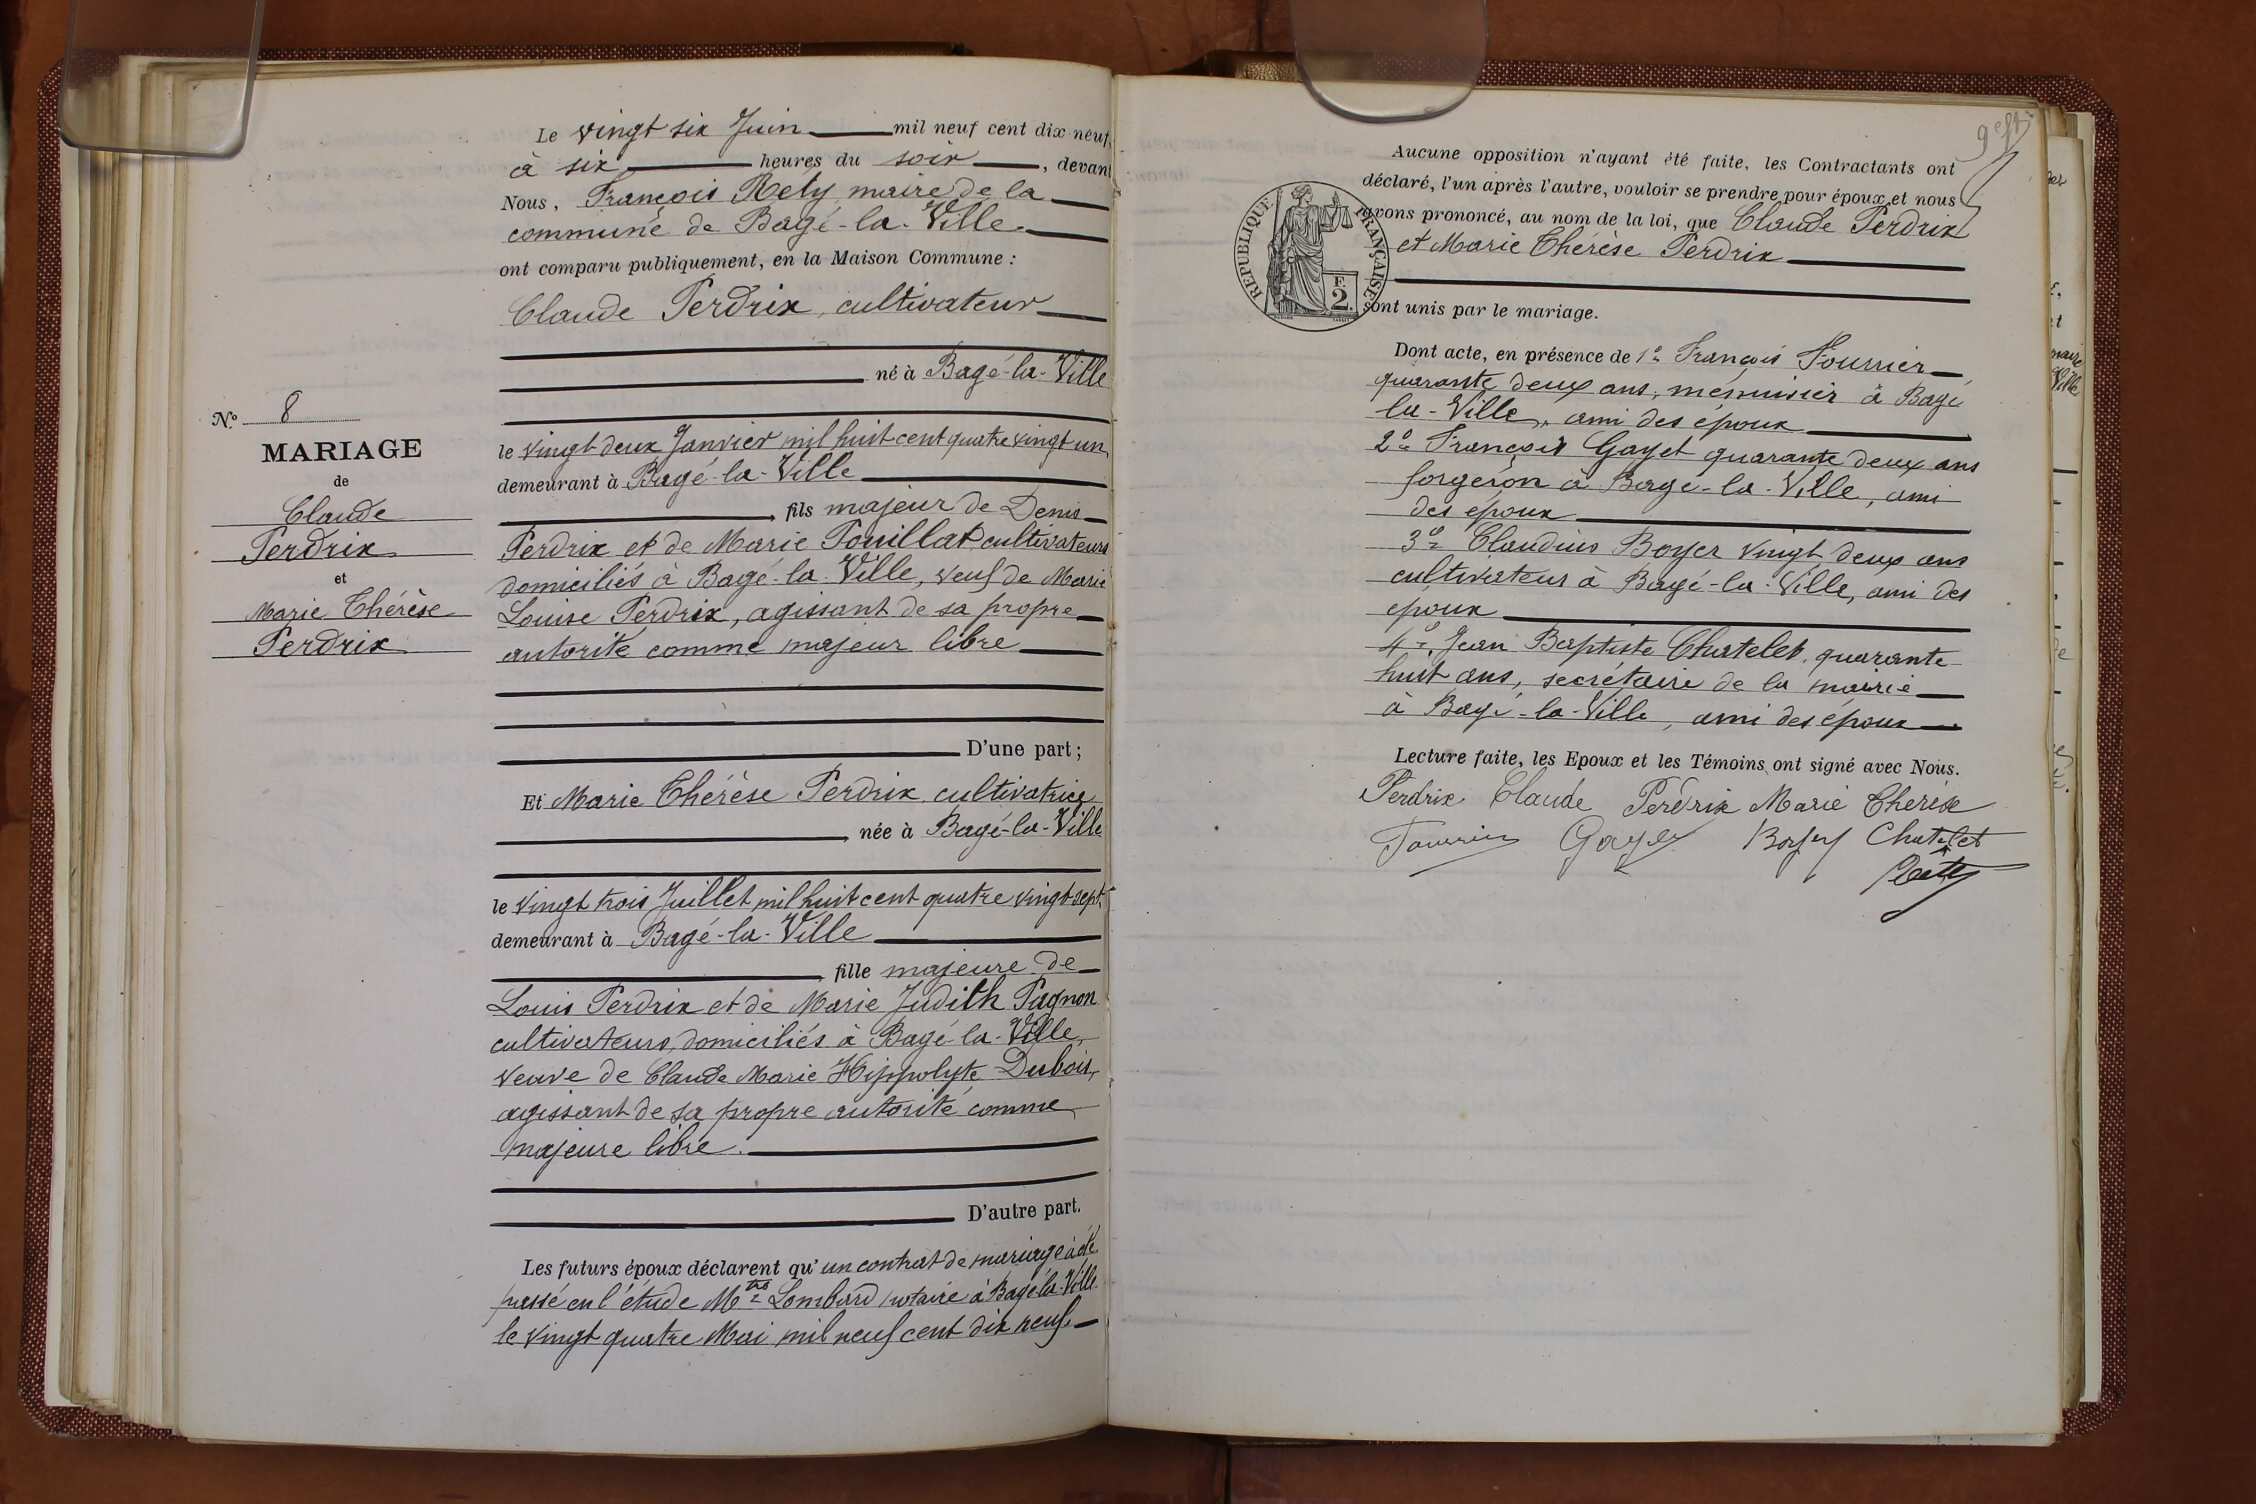 Le vingt six Juin mil neuf cent dix neuf,
à six heures du soir, devant
Nous, François Rety maire de la
commune de Bagé-la-Ville.
ont comparu publiquement, en la Maison Commune :
Claude Perdrix, cultivateur
né à Bagé-la-Ville
le vingt deux Janvier mil huit cent quatre vingt un
demeurant à Bagé-la-Ville
fils majeur de Denis
Perdrix et de Marie Pouillat cultivateurs
domiciliés à Bagé-la-Ville, veuf de Marie
Louise Perdrix, agissant de sa propre
autorité comme majeur libre
D'une part ;
Et Marie Thérèse Perdrix cultivatrice
née à Bagé-la-Ville
le vingt trois Juillet mil huit cent quatre vingt sept
demeurant à Bagé-la-Ville
fille majeure de
Louis Perdrix et de Marie Judith Pagnon
cultivateurs, domiciliés à Bagé-la-Ville,
veuve de Claude Marie Hippolyte Dubois,
agissant de sa propre autorité comme
majeure libre.
D'autre part.
Les futurs époux déclarent qu'un contrat de mariage a été
passé en l'étude Mtre Lombard notaire à Bagé-la-Ville
le vingt quatre Mai mil neuf cent dix neuf
N.º 8
MARIAGE
de
Claude
Perdrix
et
Marie Thérèse
Perdrix
Aucune opposition n'ayant été faite, les Contractants ont
déclaré, l'un après l'autre, vouloir se prendre pour époux, et nous
avons prononcé, au nom de la loi, que Claude Perdrix
et Marie Thérèse Perdrix
sont unis par le mariage.
RÉPUBLIQUE FRANÇAISE
F.
2
Dont acte, en présence de 1º François Fourrier
quarante deux ans, menuisier à Bagé
la-Ville, ami des époux
2º François Gayet quarante deux ans
forgeron à Bagé-la-Ville, ami
des époux
3º Claudius Boyer vingt deux ans
cultivateur à Bagé-la-Ville, ami des
époux
4º Jean Baptiste Chatelet, quarante
huit ans, secrétaire de la mairie
à Bagé-la-Ville, ami des époux
Lecture faite, les Epoux et les Témoins ont signé avec Nous.
Perdrix Claude Perdrix Marie Thérèse
Gayet Boyer Chatelet